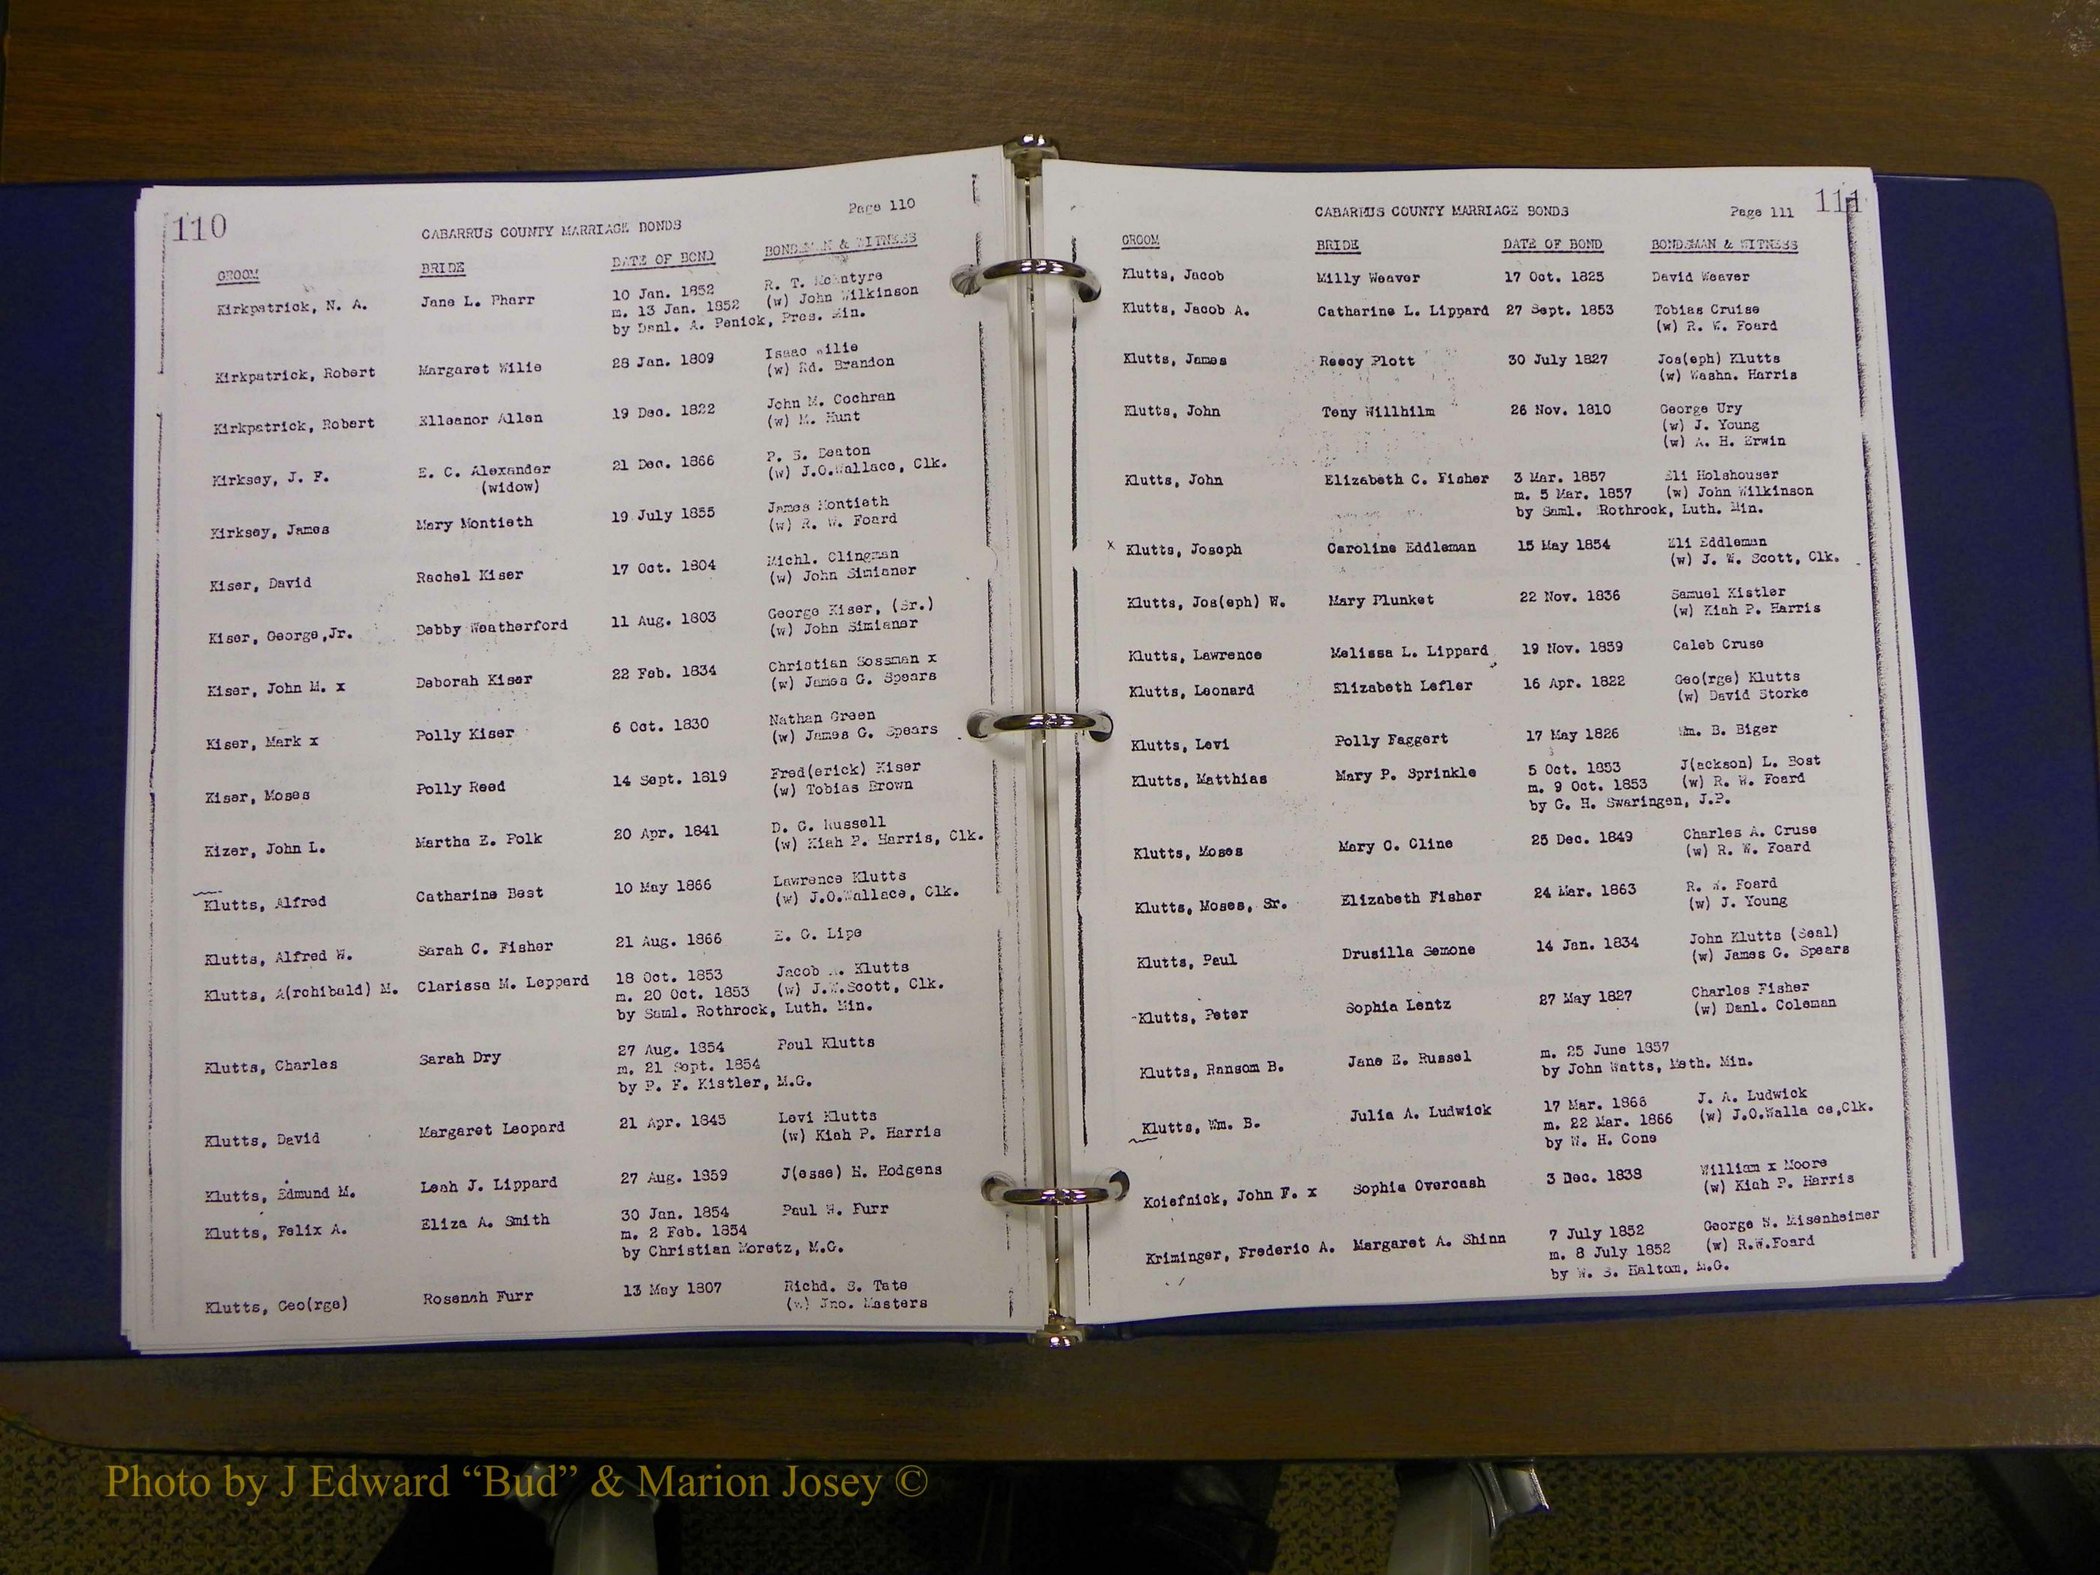 110
Page 110
CABARRUS COUNTY MARRIAGE BONDS
GROOM BRIDE DATE OF BOND BONDSMAN & WITNESS
Kirkpatrick, N. A. Jane L. Pharr 10 Jan. 1852 R. T. McIntyre
m. 13 Jan. 1852 (w) John Wilkinson
by Danl. A. Penick, Pres. Min.
Kirkpatrick, Robert Margaret Wilie 28 Jan. 1809 Isaac Wilie
(w) Rd. Brandon
Kirkpatrick, Robert Elleanor Allen 19 Dec. 1822 John M. Cochran
(w) M. Hunt
Kirksey, J. F. E. C. Alexander 21 Dec. 1866 P. S. Deaton
(widow) (w) J.O.Wallace, Clk.
Kirksey, James Mary Montieth 19 July 1855 James Montieth
(w) R. W. Foard
Kiser, David Rachel Kiser 17 Oct. 1804 Michl. Clingman
(w) John Simianer
Kiser, George,Jr. Debby Weatherford 11 Aug. 1803 George Kiser, (Sr.)
(w) John Simianer
Kiser, John M. x Deborah Kiser 22 Feb. 1834 Christian Sossman x
(w) James G. Spears
Kiser, Mark x Polly Kiser 6 Oct. 1830 Nathan Green
(w) James G. Spears
Kiser, Moses Polly Reed 14 Sept. 1819 Fred(erick) Kiser
(w) Tobias Brown
Kizer, John L. Martha E. Polk 20 Apr. 1841 D. G. Russell
(w) Kiah P. Harris, Clk.
Klutts, Alfred Catharine Best 10 May 1866 Lawrence Klutts
(w) J.O.Wallace, Clk.
Klutts, Alfred W. Sarah C. Fisher 21 Aug. 1866 E. G. Lipe
Klutts, A(rchibald) M. Clarissa M. Leppard 18 Oct. 1853 Jacob A. Klutts
m. 20 Oct. 1853 (w) J.W.Scott, Clk.
by Saml. Rothrock, Luth. Min.
Klutts, Charles Sarah Dry 27 Aug. 1854 Paul Klutts
m. 21 Sept. 1854
by P. F. Kistler, M.G.
Klutts, David Margaret Leopard 21 Apr. 1845 Levi Klutts
(w) Kiah P. Harris
Klutts, Edmund M. Leah J. Lippard 27 Aug. 1859 J(esse) H. Hodgens
Klutts, Felix A. Eliza A. Smith 30 Jan. 1854 Paul W. Furr
m. 2 Feb. 1854
by Christian Moretz, M.G.
Klutts, Geo(rge) Rosenah Furr 13 May 1807 Richd. S. Tate
(w) Jno. Masters
111
Page 111
CABARRUS COUNTY MARRIAGE BONDS
GROOM BRIDE DATE OF BOND BONDSMAN & WITNESS
Klutts, Jacob Milly Weaver 17 Oct. 1825 David Weaver
Klutts, Jacob A. Catharine L. Lippard 27 Sept. 1853 Tobias Cruise
(w) R. W. Foard
Klutts, James Reecy Plott 30 July 1827 Jos(eph) Klutts
(w) Washn. Harris
Klutts, John Teny Willhilm 26 Nov. 1810 George Ury
(w) J. Young
(w) A. H. Erwin
Klutts, John Elizabeth C. Fisher 3 Mar. 1857 Eli Holshouser
m. 5 Mar. 1857 (w) John Wilkinson
by Saml. Rothrock, Luth. Min.
x Klutts, Joseph Caroline Eddleman 15 May 1854 Eli Eddleman
(w) J. W. Scott, Clk.
Klutts, Jos(eph) W. Mary Plunket 22 Nov. 1836 Samuel Kistler
(w) Kiah P. Harris
Klutts, Lawrence Melissa L. Lippard 19 Nov. 1859 Caleb Cruse
Klutts, Leonard Elizabeth Lefler 16 Apr. 1822 Geo(rge) Klutts
(w) David Storke
Klutts, Levi Polly Faggert 17 May 1826 Wm. B. Biger
Klutts, Matthias Mary P. Sprinkle 5 Oct. 1853 J(ackson) L. Bost
m. 9 Oct. 1853 (w) R. W. Foard
by G. H. Swaringen, J.P.
Klutts, Moses Mary C. Cline 25 Dec. 1849 Charles A. Cruse
(w) R. W. Foard
Klutts, Moses, Sr. Elizabeth Fisher 24 Mar. 1863 R. W. Foard
(w) J. Young
Klutts, Paul Drusilla Semone 14 Jan. 1834 John Klutts (Seal)
(w) James G. Spears
-Klutts, Peter Sophia Lentz 27 May 1827 Charles Fisher
(w) Danl. Coleman
Klutts, Ransom B. Jane E. Russel m. 25 June 1857
by John Watts, Meth. Min.
Klutts, Wm. B. Julia A. Ludwick 17 Mar. 1866 J. A. Ludwick
m. 22 Mar. 1866 (w) J.O.Walla ce,Clk.
by W. H. Cone
Koiefnick, John F. x Sophia Overcash 3 Dec. 1838 William x Moore
(w) Kiah P. Harris
Kriminger, Frederic A. Margaret A. Shinn 7 July 1852 George W. Misenheimer
m. 8 July 1852 (w) R.W.Foard
by W. S. Haltom, M.G.
Photo by J Edward “Bud” & Marion Josey ©